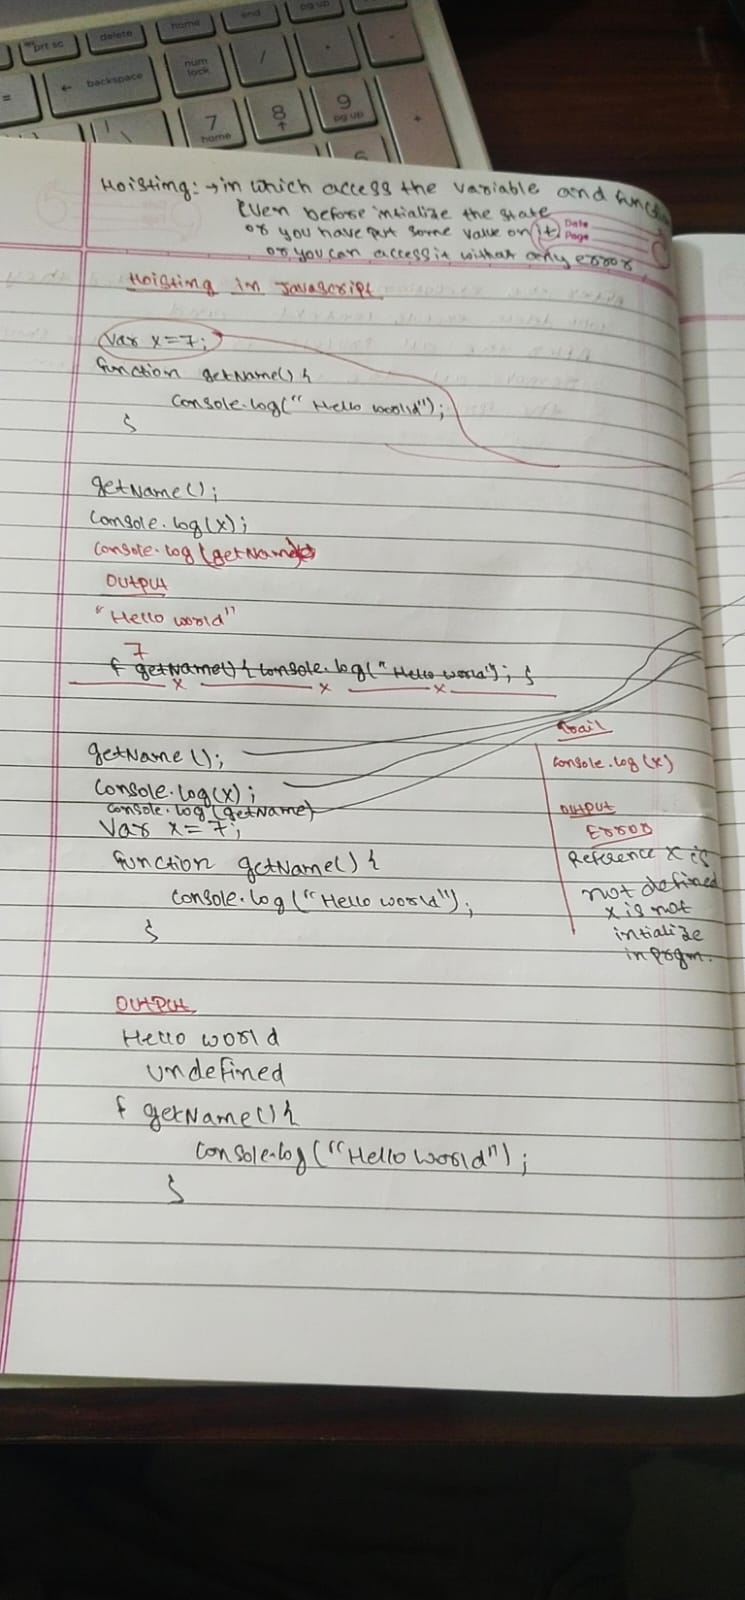 prt sc
delete
home
end
pg up
=
← backspace
num
lock
/
*
-
|
\
7
home
8
↑
9
pg up
+
6
Hoisting: → in which access the variable and
Even before intialize the state
or you have put some value on it
Date
Page
or you can access it any error
Hoisting in Javascript
Var x = 7;
function getName() {
Console.log("Hello world");
}
getName();
Console.log(x);
Console.log(getName)
Output
"Hello world"
7
f getName() { Console.log("Hello world"); }
x x x
getName();
Console.log(x);
Console.log(getName)
Var x = 7;
function getName() {
Console.log("Hello world");
}
Console.log(x)
Output
Error
Reference x is
not defined
x is not
intialize
in prgm.
Output
Hello world
undefined
f getName() {
Console.log("Hello world");
}